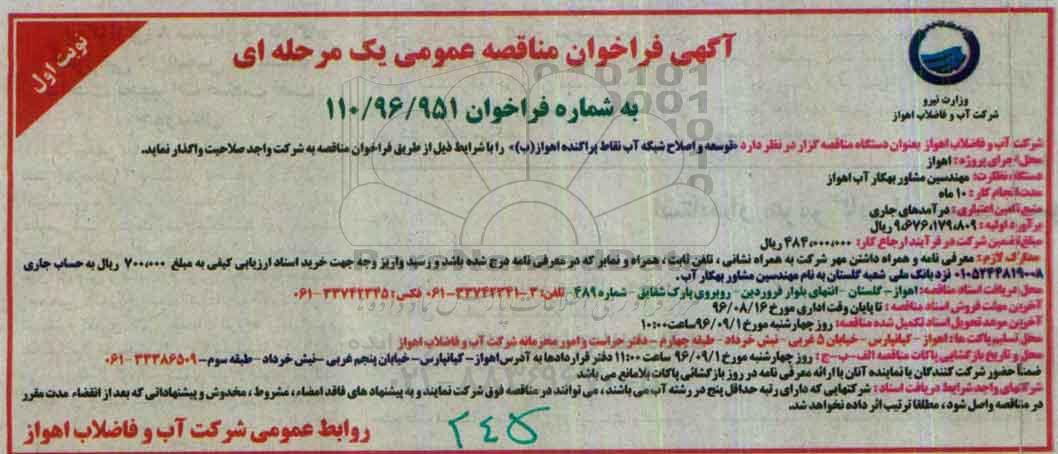 نوبت اول
آگهی فراخوان مناقصه عمومی یک مرحله ای
به شماره فراخوان ۱۱۰/۹۶/۹۵۱
وزارت نیرو
شرکت آب و فاضلاب اهواز
شرکت آب و فاضلاب اهواز بعنوان دستگاه مناقصه گزار در نظر دارد «توسعه و اصلاح شبکه آب نقاط پراکنده اهواز(ب)» را با شرایط ذیل از طریق فراخوان مناقصه به شرکت واجد صلاحیت واگذار نماید.
محل اجرای پروژه: اهواز
دستگاه نظارت: مهندسین مشاور بهکار آب اهواز
مدت انجام کار: ۱۰ ماه
منبع تامین اعتباری: درآمدهای جاری
برآورد اولیه: ۹،۶۷۶،۱۷۹،۸۰۹ ریال
مبلغ تضمین شرکت در فرآیند ارجاع کار: ۴۸۴،۰۰۰،۰۰۰ ریال
مدارک لازم: معرفی نامه و همراه داشتن مهر شرکت به همراه نشانی، تلفن ثابت، همراه و نمابر که در معرفی نامه درج شده باشد و رسید واریز وجه جهت خرید اسناد ارزیابی کیفی به مبلغ ۷۰۰،۰۰۰ ریال به حساب جاری
۰۱۰۵۲۴۴۸۱۹۰۰۸ نزد بانک ملی شعبه گلستان به نام مهندسین مشاور بهکار آب.
محل دریافت اسناد مناقصه: اهواز- گلستان - انتهای بلوار فروردین - روبروی پارک شقایق - شماره ۴۸۹ تلفن: ۳-۳۳۷۴۲۳۴۱-۰۶۱ فکس: ۳۳۷۴۲۳۴۵-۰۶۱
آخرین مهلت فروش اسناد مناقصه: تا پایان وقت اداری مورخ ۹۶/۰۸/۱۶
آخرین موعد تحویل اسناد تکمیل شده مناقصه: روز چهارشنبه مورخ ۹۶/۰۹/۱ ساعت ۱۰:۰۰
محل تسلیم پاکت ها: اهواز - کیانپارس - خیابان ۵ غربی - نبش خرداد - طبقه چهارم - دفتر حراست و امور محرمانه شرکت آب و فاضلاب اهواز
محل و تاریخ بازگشایی پاکات مناقصه الف-ب-ج: روز چهارشنبه مورخ ۹۶/۰۹/۱ ساعت ۱۱:۰۰ دفتر قراردادها به آدرس اهواز- کیانپارس- خیابان پنجم غربی - نبش خرداد - طبقه سوم- ۳۳۳۸۶۵۰۹-۰۶۱
ضمنا حضور شرکت کنندگان یا نماینده آنان با ارائه معرفی نامه در روز بازگشائی پاکات بلامانع می باشد
شرکتهای واجد شرایط دریافت اسناد: شرکتهایی که دارای رتبه حداقل پنج در رشته آب می باشند، می توانند در مناقصه فوق شرکت نمایند و به پیشنهاد های فاقد امضاء، مشروط، مخدوش و پیشنهاداتی که بعد از انقضاء مدت مقرر
در مناقصه واصل شود، مطلقا ترتیب اثر داده نخواهد شد.
۲۴۵
روابط عمومی شرکت آب و فاضلاب اهواز